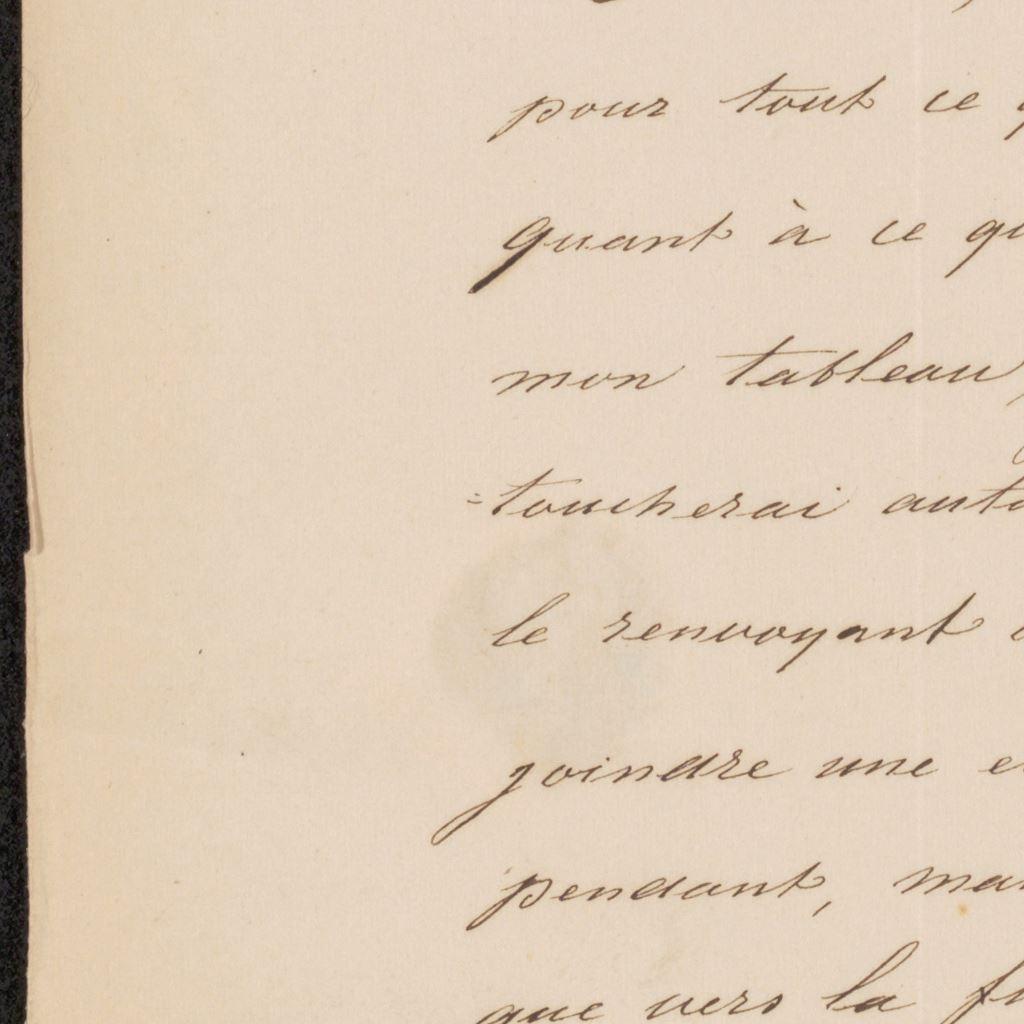 pour tout ce
quant à ce
mon tableau,
=toucherai
le renvoyant
joindre une
pendant,
que vers la